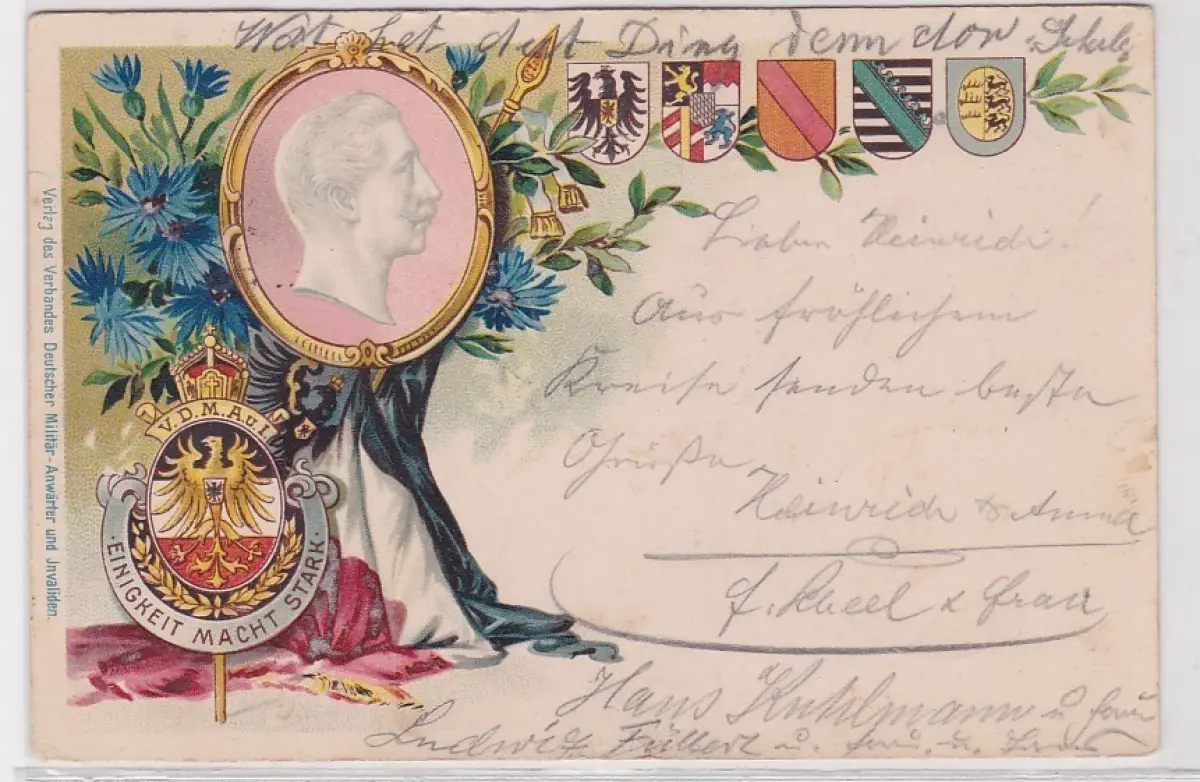 Wat het dat Ding denn dor
Lieber Heinrich!
Aus fröhlichem
Kreise senden beste
Grüße
Heinrich & Anna
f. Scheel & Frau
Hans Kuhlmann u Frau
Ludwig Füllert u. Frau. u.
V.D.M.A.u.I.
·EINIGKEIT MACHT STARK·
Verlag des Verbandes Deutscher Militär-Anwärter und Jnvaliden.